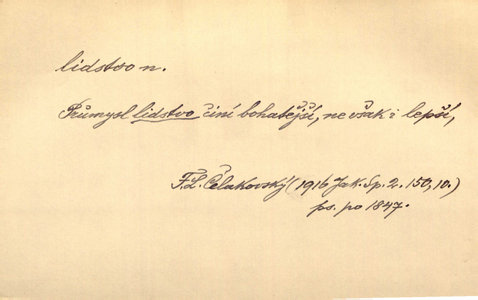 lidstvo n.
Průmysl lidstvo činí bohatější, ne však i lepší,
F. L. Čelakovský (1916 Jak. Sp. 2. 150, 10.)
ps. po 1847.